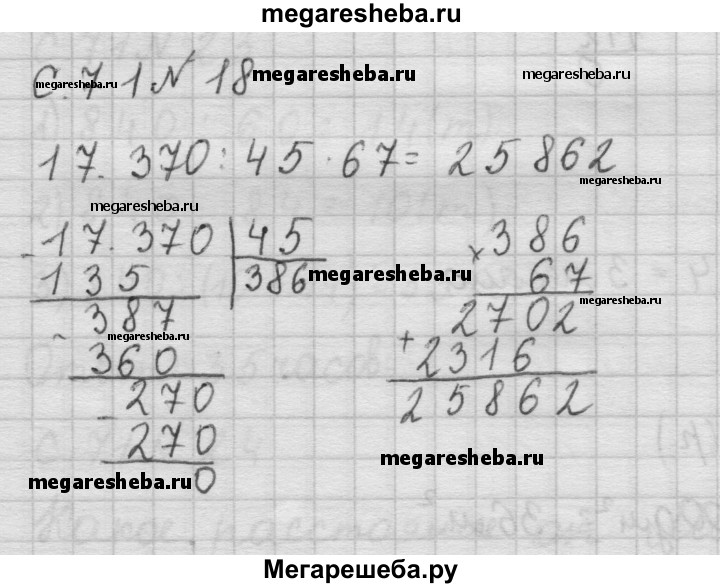 megaresheba.ru
с. 71 № 18 megaresheba.ru megaresheba.ru
megaresheba.ru
17.370 : 45 · 67 = 25862
megaresheba.ru
megaresheba.ru
- 17.370 | 45
135 386 megaresheba.ru
387
megaresheba.ru
- 360
- 270
270
0
× 386
67
megaresheba.ru
2702
+ 2316
25862
megaresheba.ru
megaresheba.ru
Мегарешеба.ру